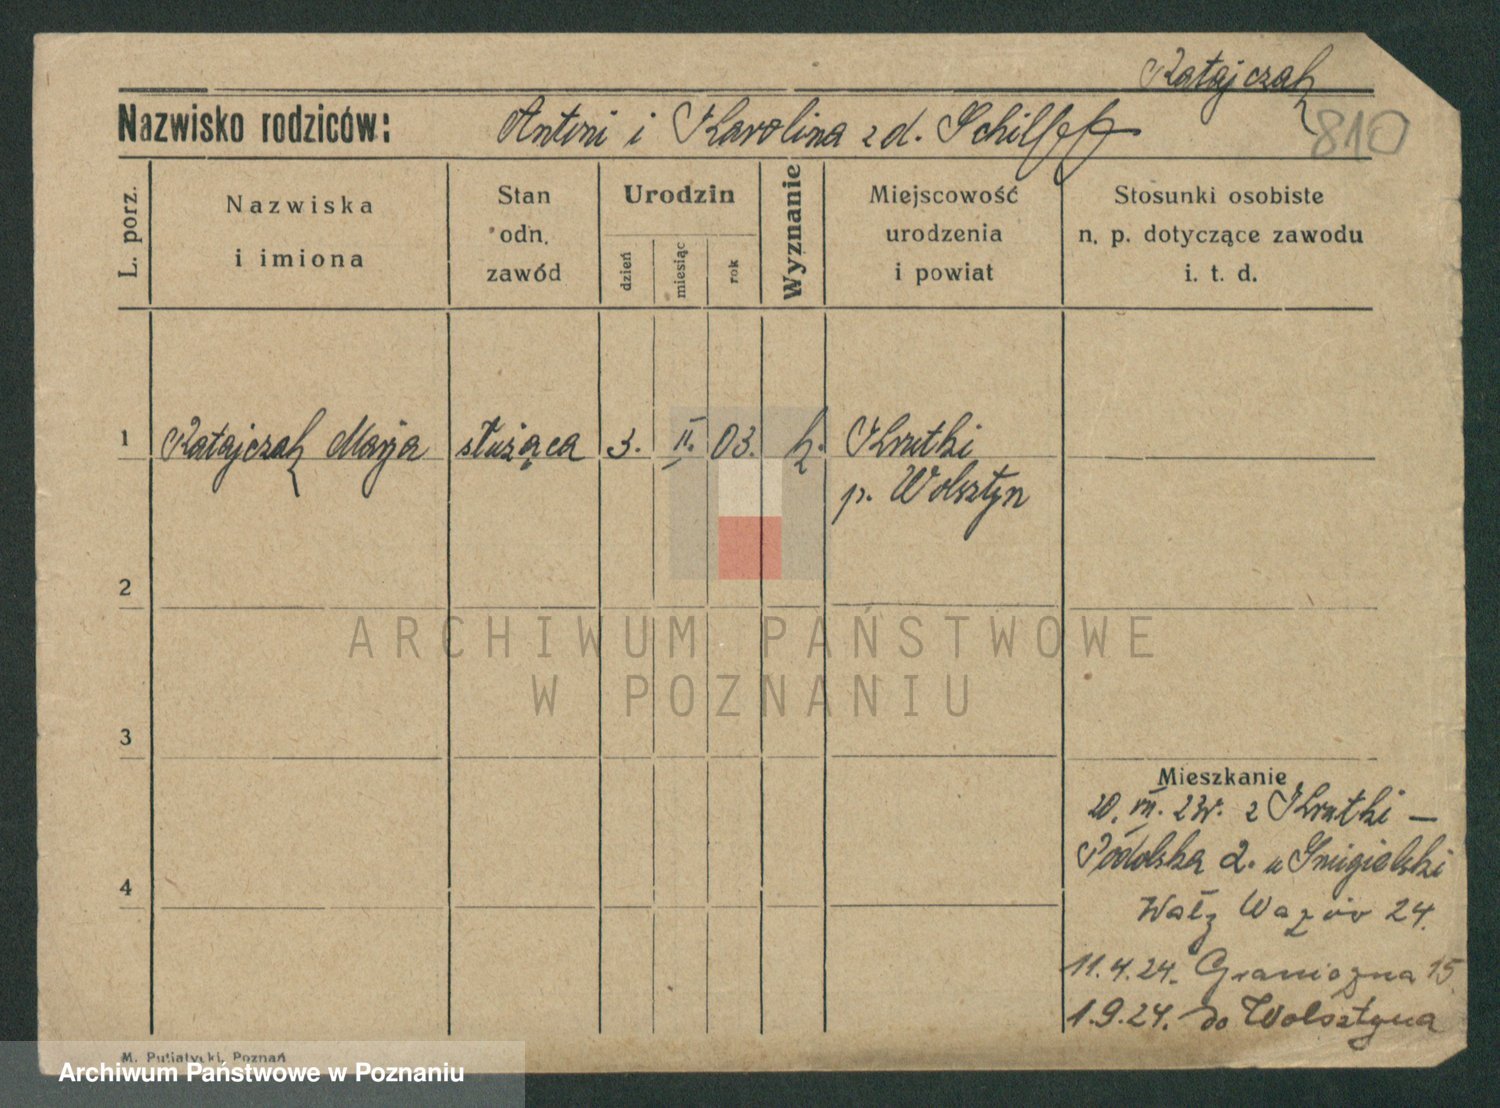 Ratajczak
810
Nazwisko rodziców: Antoni i Karolina zd. Schilff
L. porz.
Nazwiska
i imiona
Stan
odn.
zawód
Urodzin
dzień
miesiąc
rok
Wyznanie
Miejscowość
urodzenia
i powiat
Stosunki osobiste
n. p. dotyczące zawodu
i. t. d.
1 Ratajczak Marja służąca 3. II. 03. k. Krutki
p. Wolsztyn
2
3
4
Mieszkanie
20. 23r. z Krutki —
Podolska 2. u Smigielski
Wały Wazów 24.
11.4.24. Graniczna 15
1.9.24. do Wolsztyna
M. Putiatycki, Poznań
ARCHIWUM PAŃSTWOWE
W POZNANIU
Archiwum Państwowe w Poznaniu